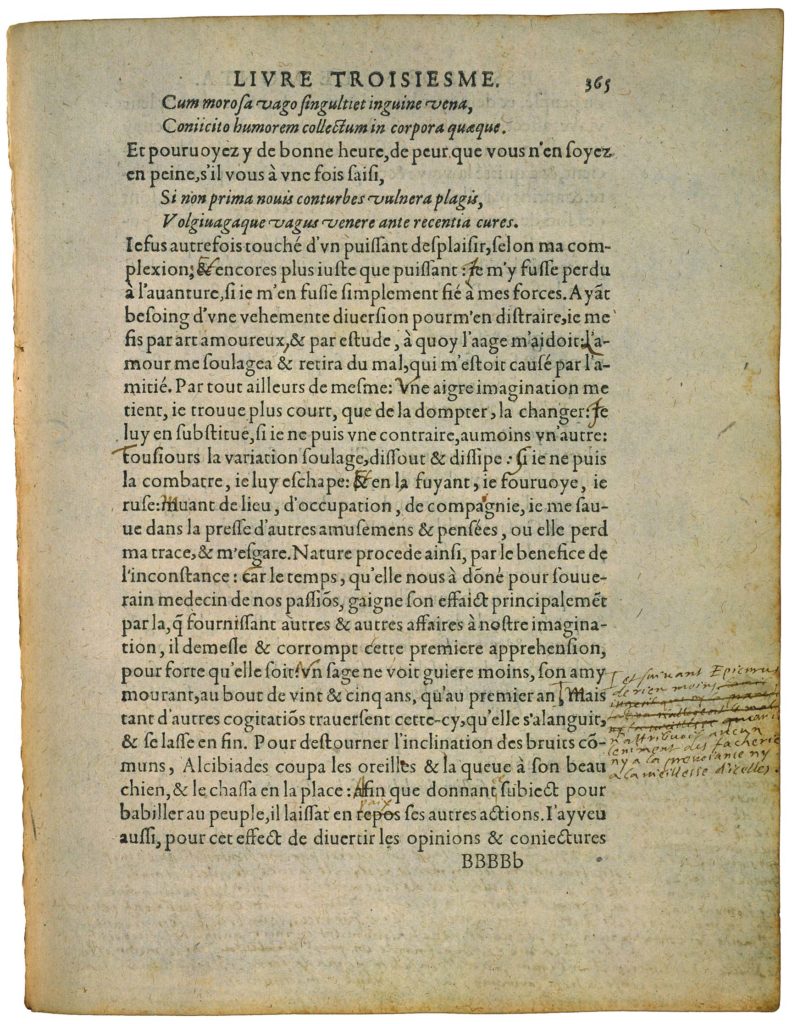 LIVRE TROISIESME. 365
Cum morosa vago singultiet inguine vena,
Coniicito humorem collectum in corpora quæque.
Et pouruoyez y de bonne heure, de peur que vous n'en soyez
en peine, s'il vous à vne fois saisi,
Si non prima nouis conturbes vulnera plagis,
Volgiuagaque vagus venere ante recentia cures.
Ie fus autrefois touché d'vn puissant desplaisir, selon ma com-
plexion; & encores plus iuste que puissant: Je m'y fusse perdu
à l'auanture, si ie m'en fusse simplement fié à mes forces. Ayāt
besoing d'vne vehemente diuersion pour m'en distraire, ie me
fis par art amoureux, & par estude, à quoy l'aage m'aidoit: L'a-
mour me soulagea & retira du mal, qui m'estoit causé par l'a-
mitié. Par tout ailleurs de mesme: Vne aigre imagination me
tient, ie trouue plus court, que de la dompter, la changer: Je
luy en substitue, si ie ne puis vne contraire, aumoins vn'autre:
Tousiours la variation soulage, dissout & dissipe: Si ie ne puis
la combatre, ie luy eschape: & en la fuyant, ie fouruoye, ie
ruse: Muant de lieu, d'occupation, de compagnie, ie me sau-
ue dans la presse d'autres amusemens & pensées, ou elle perd
ma trace, & m'esgare. Nature procede ainsi, par le benefice de
l'inconstance: Car le temps, qu'elle nous à dōné pour souue-
rain medecin de nos passiōs, gaigne son effaict principalemēt
par la, q̄ fournissant autres & autres affaires à nostre imagina-
tion, il demesle & corrompt cette premiere apprehension,
pour forte qu'elle soit. Vn sage ne voit guiere moins, son amy
mourant, au bout de vint & cinq ans, qu'au premier an, Mais
et suivant Epicurus
de rien moins
n'attribuoit aucun
leniment des facheries
ny a la prevoiance ny
a la vieillesse d'icelles.
tant d'autres cogitatiōs trauersent cette-cy, qu'elle s'alanguit,
& se lasse en fin. Pour destourner l'inclination des bruits cō-
muns, Alcibiades coupa les oreilles & la queue à son beau
chien, & le chassa en la place: Afin que donnant subiect pour
paix
babiller au peuple, il laissat en repos ses autres actions. I'ay veu
aussi, pour cet effect de diuertir les opinions & coniectures
BBBBb